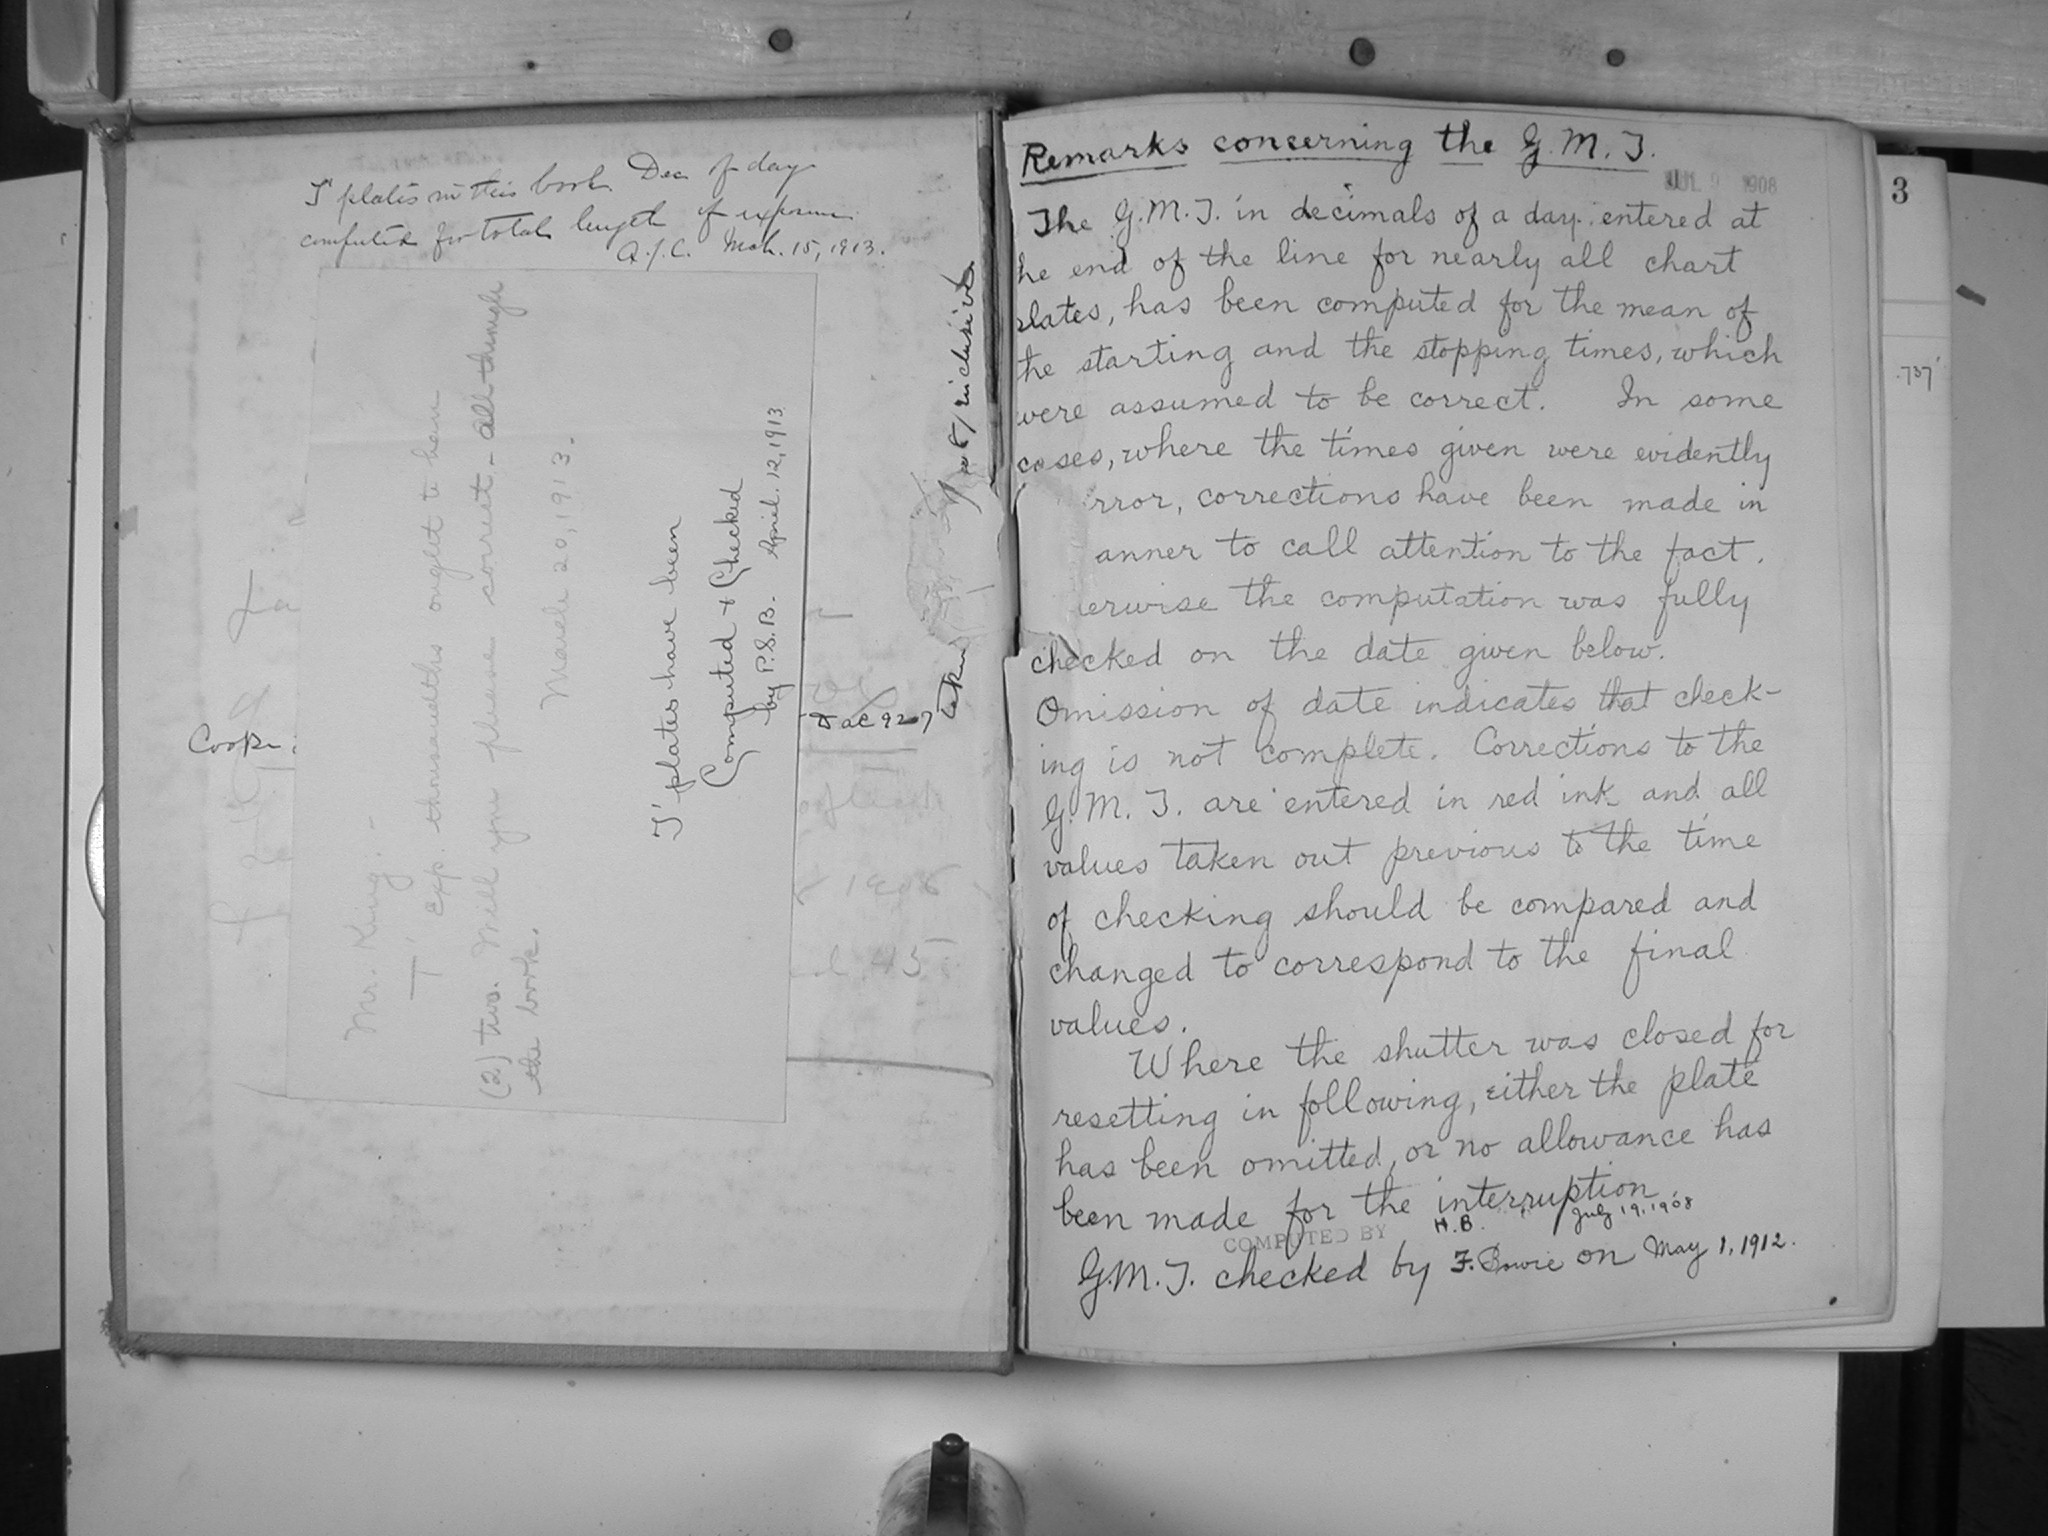 T' plates in this book Dec of day
computed for total length of exposure
A.J.C. Mch. 15, 1913.
Mr. King:-
T' Exp. thousandths ought to have
(2) two. Will you please correct - all through
the book.
March 20, 1913.
T' plates have been
Computed + Checked
by P.S.B. April. 12, 1913
Cooke
taken
inclusive
1908
Remarks concerning the G.M.T.
JUL 9 1908
The G.M.T. in decimals of a day entered at
he end of the line for nearly all chart
plates, has been computed for the mean of
the starting and the stopping times, which
were assumed to be correct. In some
cases, where the times given were evidently
rror, corrections have been made in
anner to call attention to the fact.
erwise the computation was fully
checked on the date given below.
Omission of date indicates that check-
ing is not complete. Corrections to the
G.M.T. are entered in red ink and all
values taken out previous to the time
of checking should be compared and
changed to correspond to the final
values.
Where the shutter was closed for
resetting in following, either the plate
has been omitted, or no allowance has
been made for the interruption
COMPUTED BY H.B. July 19, 1908
G.M.T. checked by F. on May 1, 1912.
3
.737